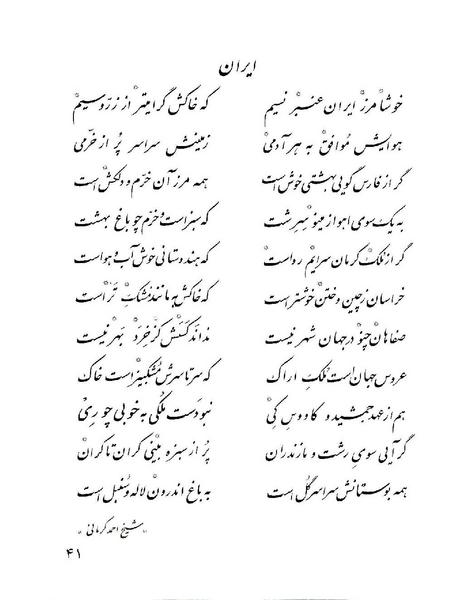 ایران
خوشا مرز ایران عنبر نسیم که خاکش گرامیتر از زر و سیم
هوایش موافق به هر آدمی زمینش سراسر پر از خرمی
گر از فارس گویی بهشتی خوش است همه مرز آن خرم و دلکش است
به یک سوی اهواز مینو سرشت که سبز است و خرم چو باغ بهشت
گر از ملک کرمان سرایم رواست که هندوستانی خوش آب و هواست
خراسان ز چین و ختن خوشتر است که خاکش به مانند مشک تر است
صفاهان چنو در جهان شهر نیست نداند کسش کز خرد بهر نیست
عروس جهان است ملک اراک که سرتاسرش مشکبیز است خاک
هم از عهد جمشید و کاووس کی نبودست ملکی به خوبی چو ری
گر آیی سوی رشت و مازندران پر از سبزه بینی کران تا کران
همه بوستانش سراسر گل است به باغ اندرون لاله و سنبل است
"شیخ احمد کرمانی"
۴۱